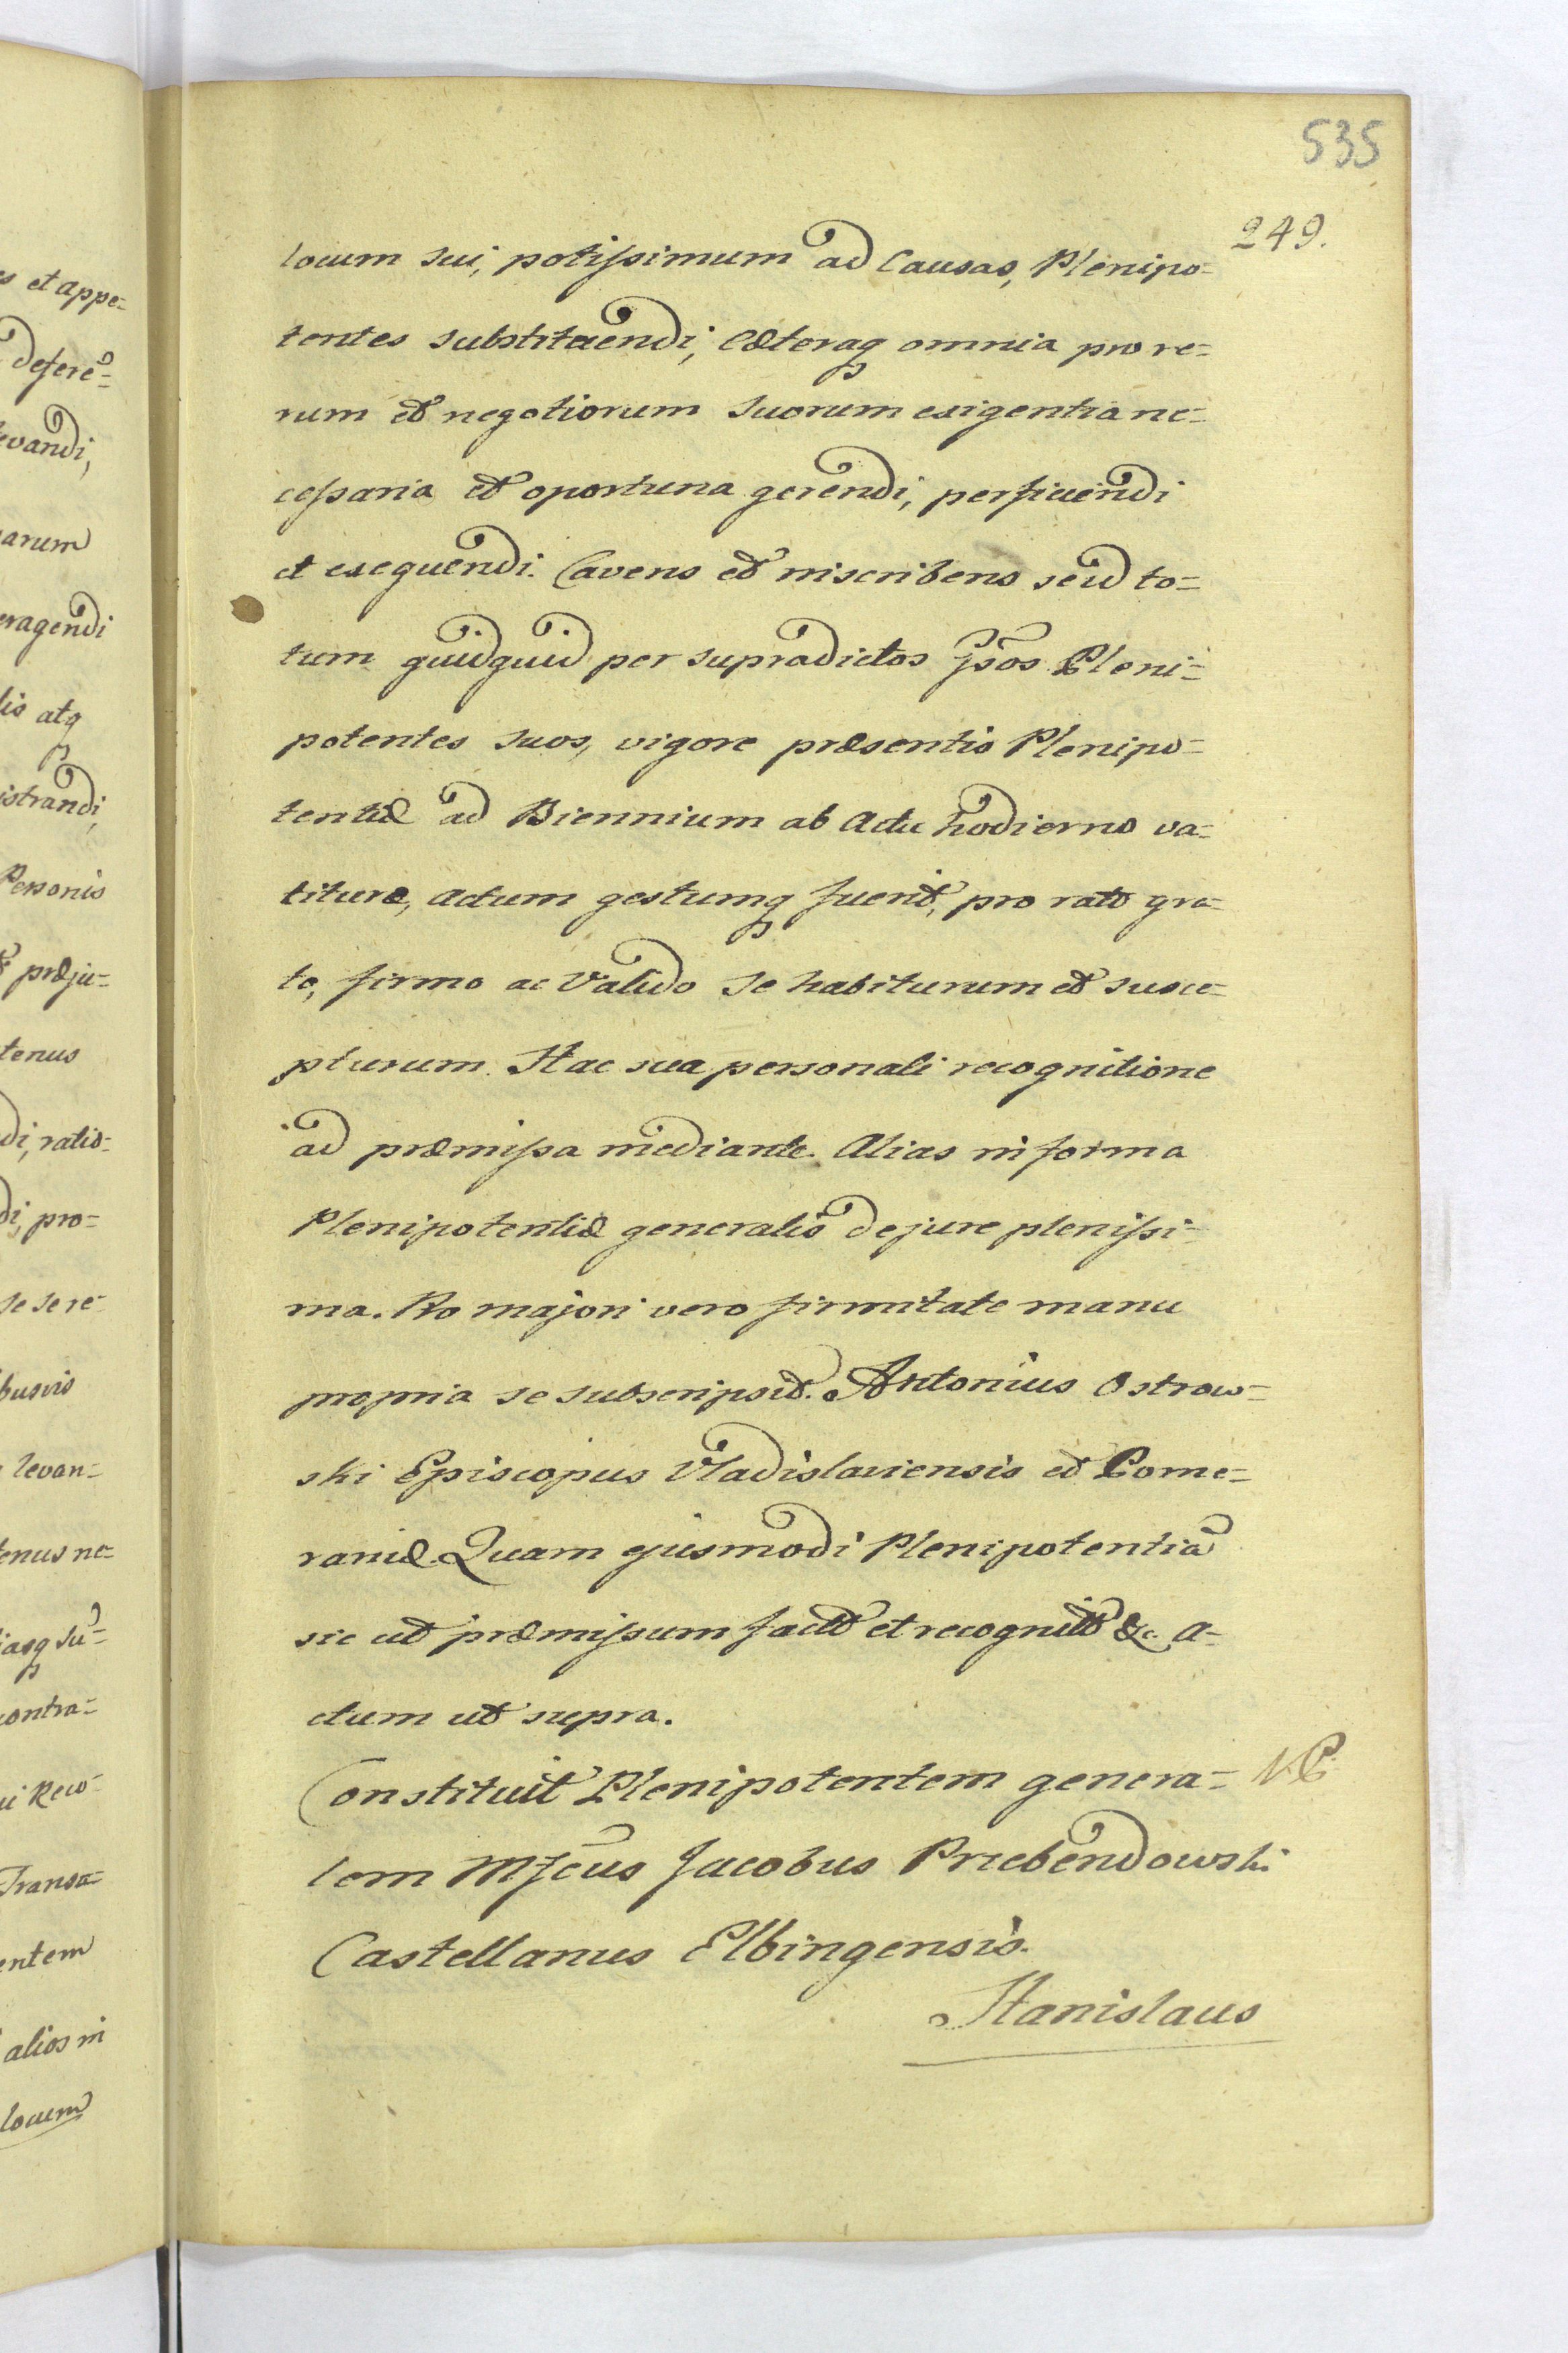 535
249.
locum sui, potissimum ad Causas, Plenipo=
tentes substituendi, Cæteraq omnia pro re=
rum et negotiorum suorum exigentia ne=
cessaria et oportuna gerendi, perficiendi
et exequendi. Cavens et inscribens se id to=
tum quidquid per supradictos Gsos Pleni=
potentes suos, vigore præsentis Plenipo=
tentiæ ad Biennium ab Actu hodierno va=
lituræ, actum gestumq fuerit, pro rato gra=
to, firmo ac Valido se habiturum et susce=
pturum. Hac sua personali recognitione
ad præmissa mediante. Alias in forma
Plenipotentiæ generalis de jure plenissi=
ma. Pro majori vero firmitate manu
propria se subscripsit. Antonius Ostrow=
ski Episcopus Vladislaviensis et Pome=
raniæ. Quam ejusmodi Plenipotentiã
sic ut præmissum factã et recognitã &c. A=
ctum ut supra.
Constituit Plenipotentem genera= NP
lem Mfcus Jacobus Przebendowski
Castellanus Elbingensis.
Stanislaus
s et appe=
deferē=
evandi,
arum
eragendi
lis atq
istrandi,
Personis
præju=
tenus
di, ratio=
di, pro=
se se re=
busvis
levan=
tenus ne=
iasq su=
contra=
ui Reco=
Transa=
entem
alios in
locum